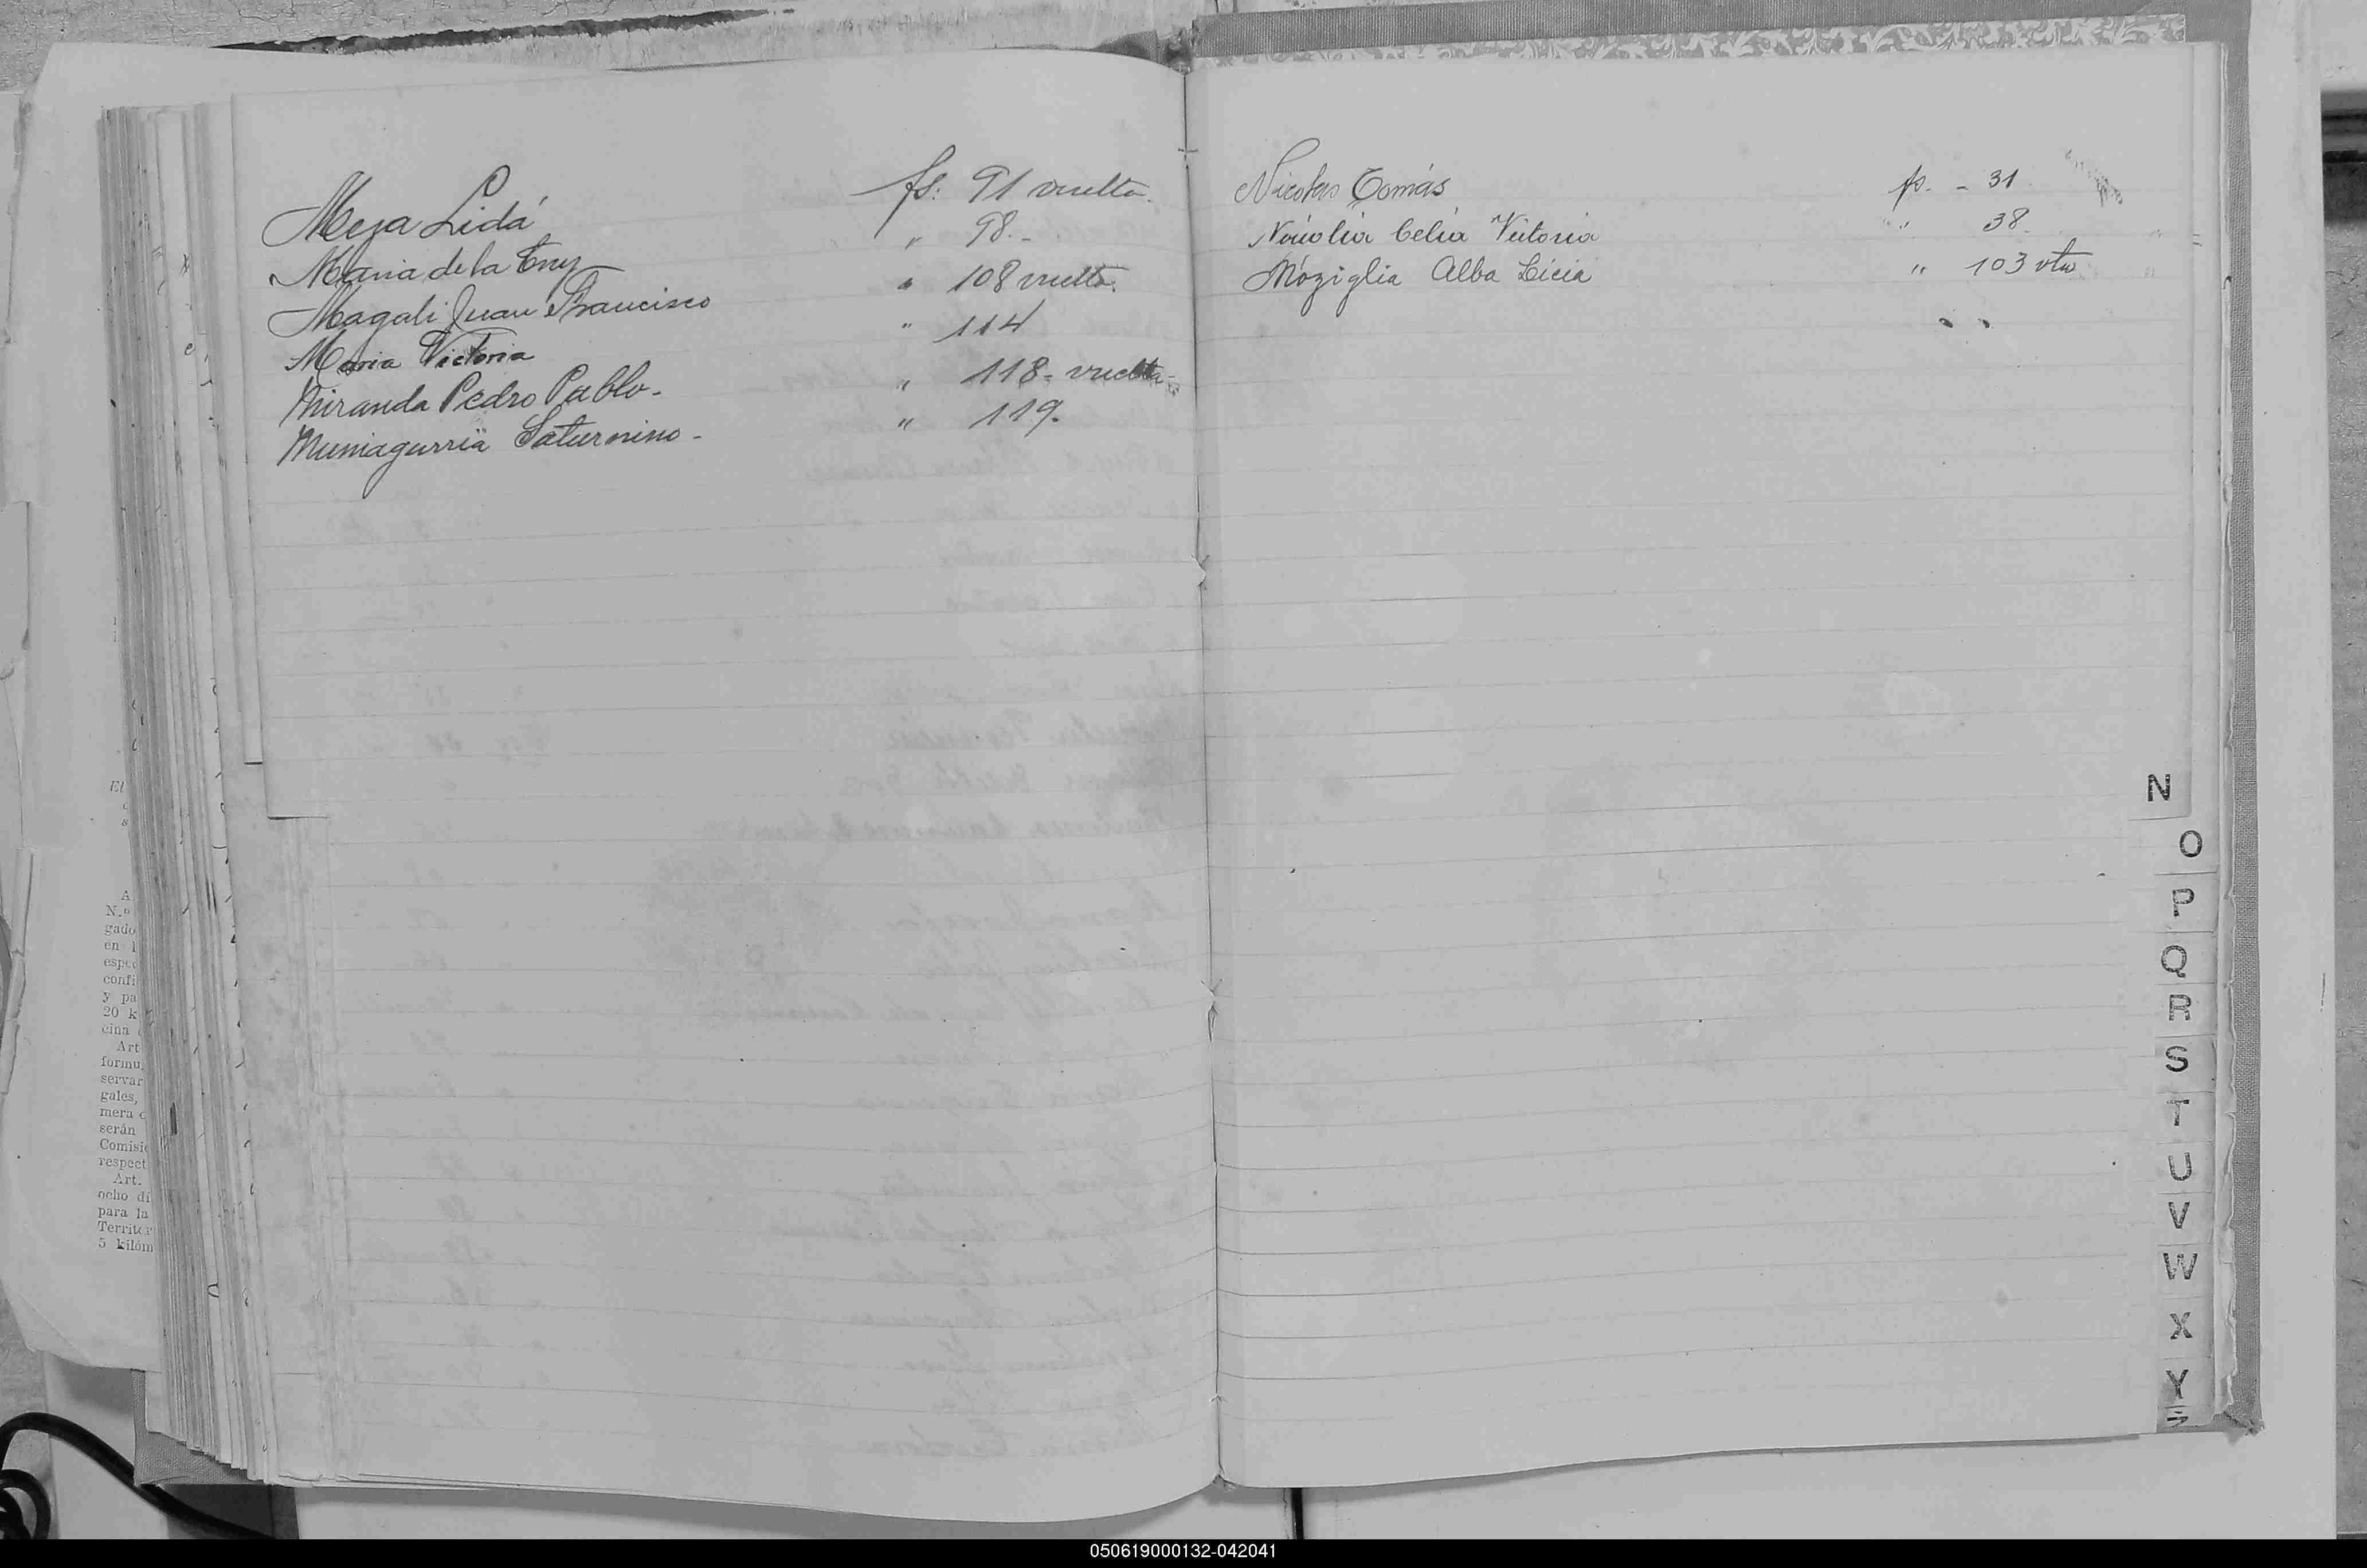 Meza Lidá fs: 91 vuelta.
Maria de la Cruz " 98.-
Magali Juan Francisco " 108 vuelta.
Maria Victoria " 114
Miranda Pedro Pablo- " 118- vuelta-
Muniagurria Saturnino- " 119.
Nicolas Tomás fs. - 31
Celia Victoria " 38.
Alba Licia " 103 vta
N
O
P
Q
R
S
T
U
V
W
X
Y
Z
El
A
N.º
gado
en l
espec
confi
y pa
20 k
cina
Art
formu
servar
gales,
mera c
serán
Comisi
respect
Art.
ocho dí
para la
Territor
5 kilóm
050619000132-042041